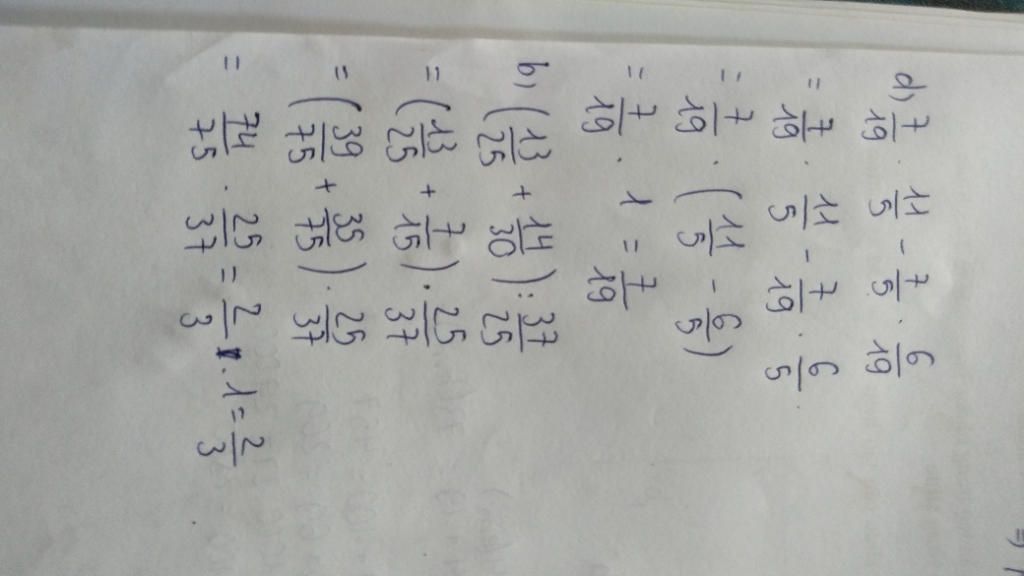 d) 7/19 . 11/5 - 7/5 . 6/19
= 7/19 . 11/5 - 7/19 . 6/5
= 7/19 . (11/5 - 6/5)
= 7/19 . 1 = 7/19
b) (13/25 + 14/30) : 37/25
= (13/25 + 7/15) . 25/37
= (39/75 + 35/75) . 25/37
= 74/75 . 25/37 = 2/3 . 1 = 2/3